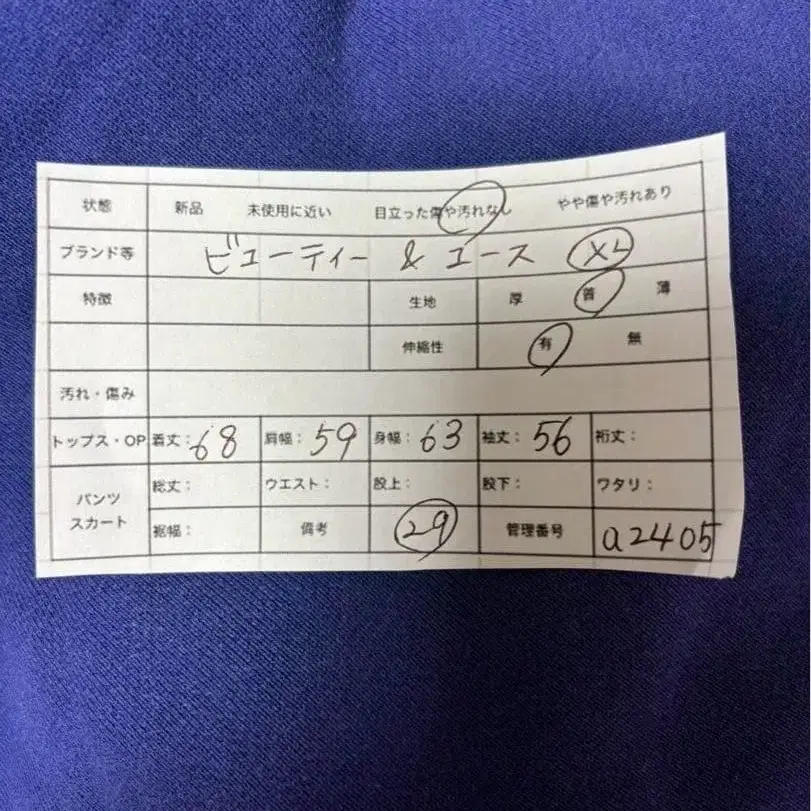 状態 新品 未使用に近い 目立った傷や汚れなし やや傷や汚れあり
ブランド等 ビューティー & ユース XL
特徴 生地 厚 普 薄
伸縮性 有 無
汚れ・傷み
トップス・OP 着丈:68 肩幅:59 身幅:63 袖丈:56 裄丈:
パンツ スカート 総丈: ウエスト: 股上: 股下: ワタリ:
裾幅: 備考 29 管理番号 a2405